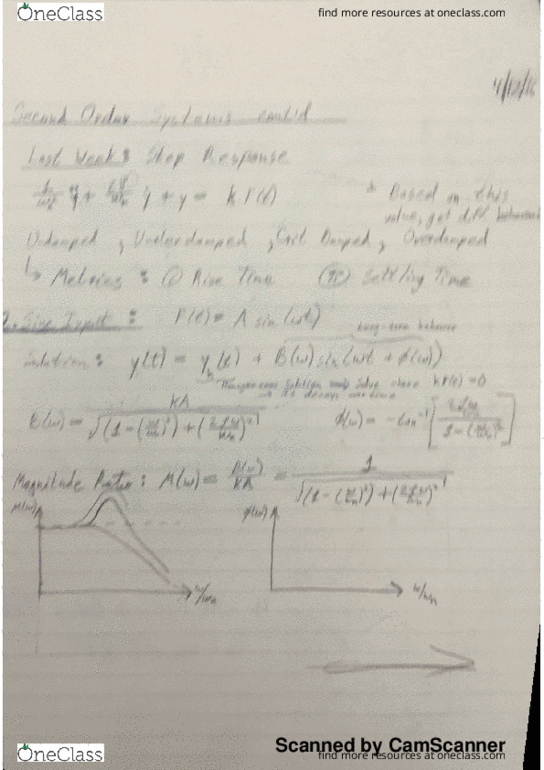 OneClass
find more resources at oneclass.com
4/12/16
Second Order Systems cont'd
Last Week: Step Response
1/ωn² ÿ + 2ζ/ωn ẏ + y = k F(t)
* Based on this
value, get diff behaviors
Undamped, Underdamped, Crit Damped, Overdamped
↳ Metrics: ① Rise Time ② Settling Time
2. Sine Input: F(t) = A sin(ωt)
long-term behavior
Solution: y(t) = yh(t) + B(ω) sin(ωt + ϕ(ω))
Homogeneous Solution ⟹ Solve above KF(t) = 0
B(ω) = KA / √((1 - (ω/ωn)²) + (2ζω/ωn)²)
ϕ(ω) = -tan⁻¹[(2ζω/ωn) / (1 - (ω/ωn)²)]
Magnitude Ratio: M(ω) = B(ω)/KA = 1 / √((1 - (ω/ωn)²) + (2ζω/ωn)²)
M(ω)
ϕ(ω)
ω/ωn
ω/ωn
Scanned by CamScanner
OneClass
find more resources at oneclass.com